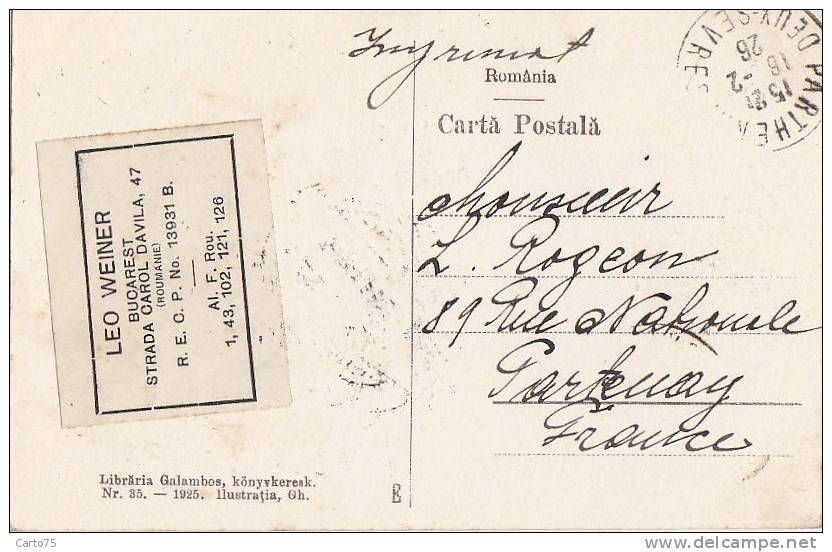 Imprimat
România
Cartă Postală
PARTHEA
15 2
16 -2
26
DEUX-SEVRES
LEO WEINER
BUCAREST
STRADA CAROL DAVILA, 47
(ROUMANIE)
R. E. C. P. No. 13931 B.
Al. F. Rou.
1, 43, 102, 121, 126
Monsieur
L. Rogeon
89 Rue Nationale
Partenay
France
Librăria Galambos, könyvkeresk.
Nr. 35. — 1925. Ilustrația, Gh.
Carto75
www.delcampe.net